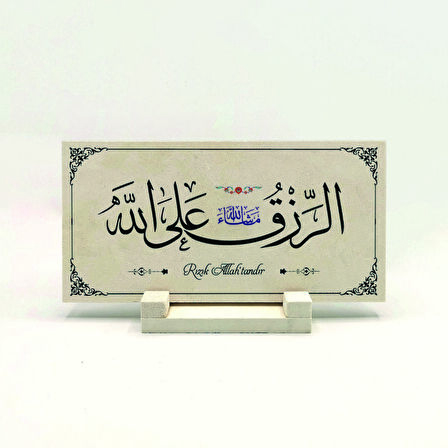 الرِّزْقُ عَلَى اللّٰهِ
مَاشَاءَاللّٰه
Rızık Allah'tandır